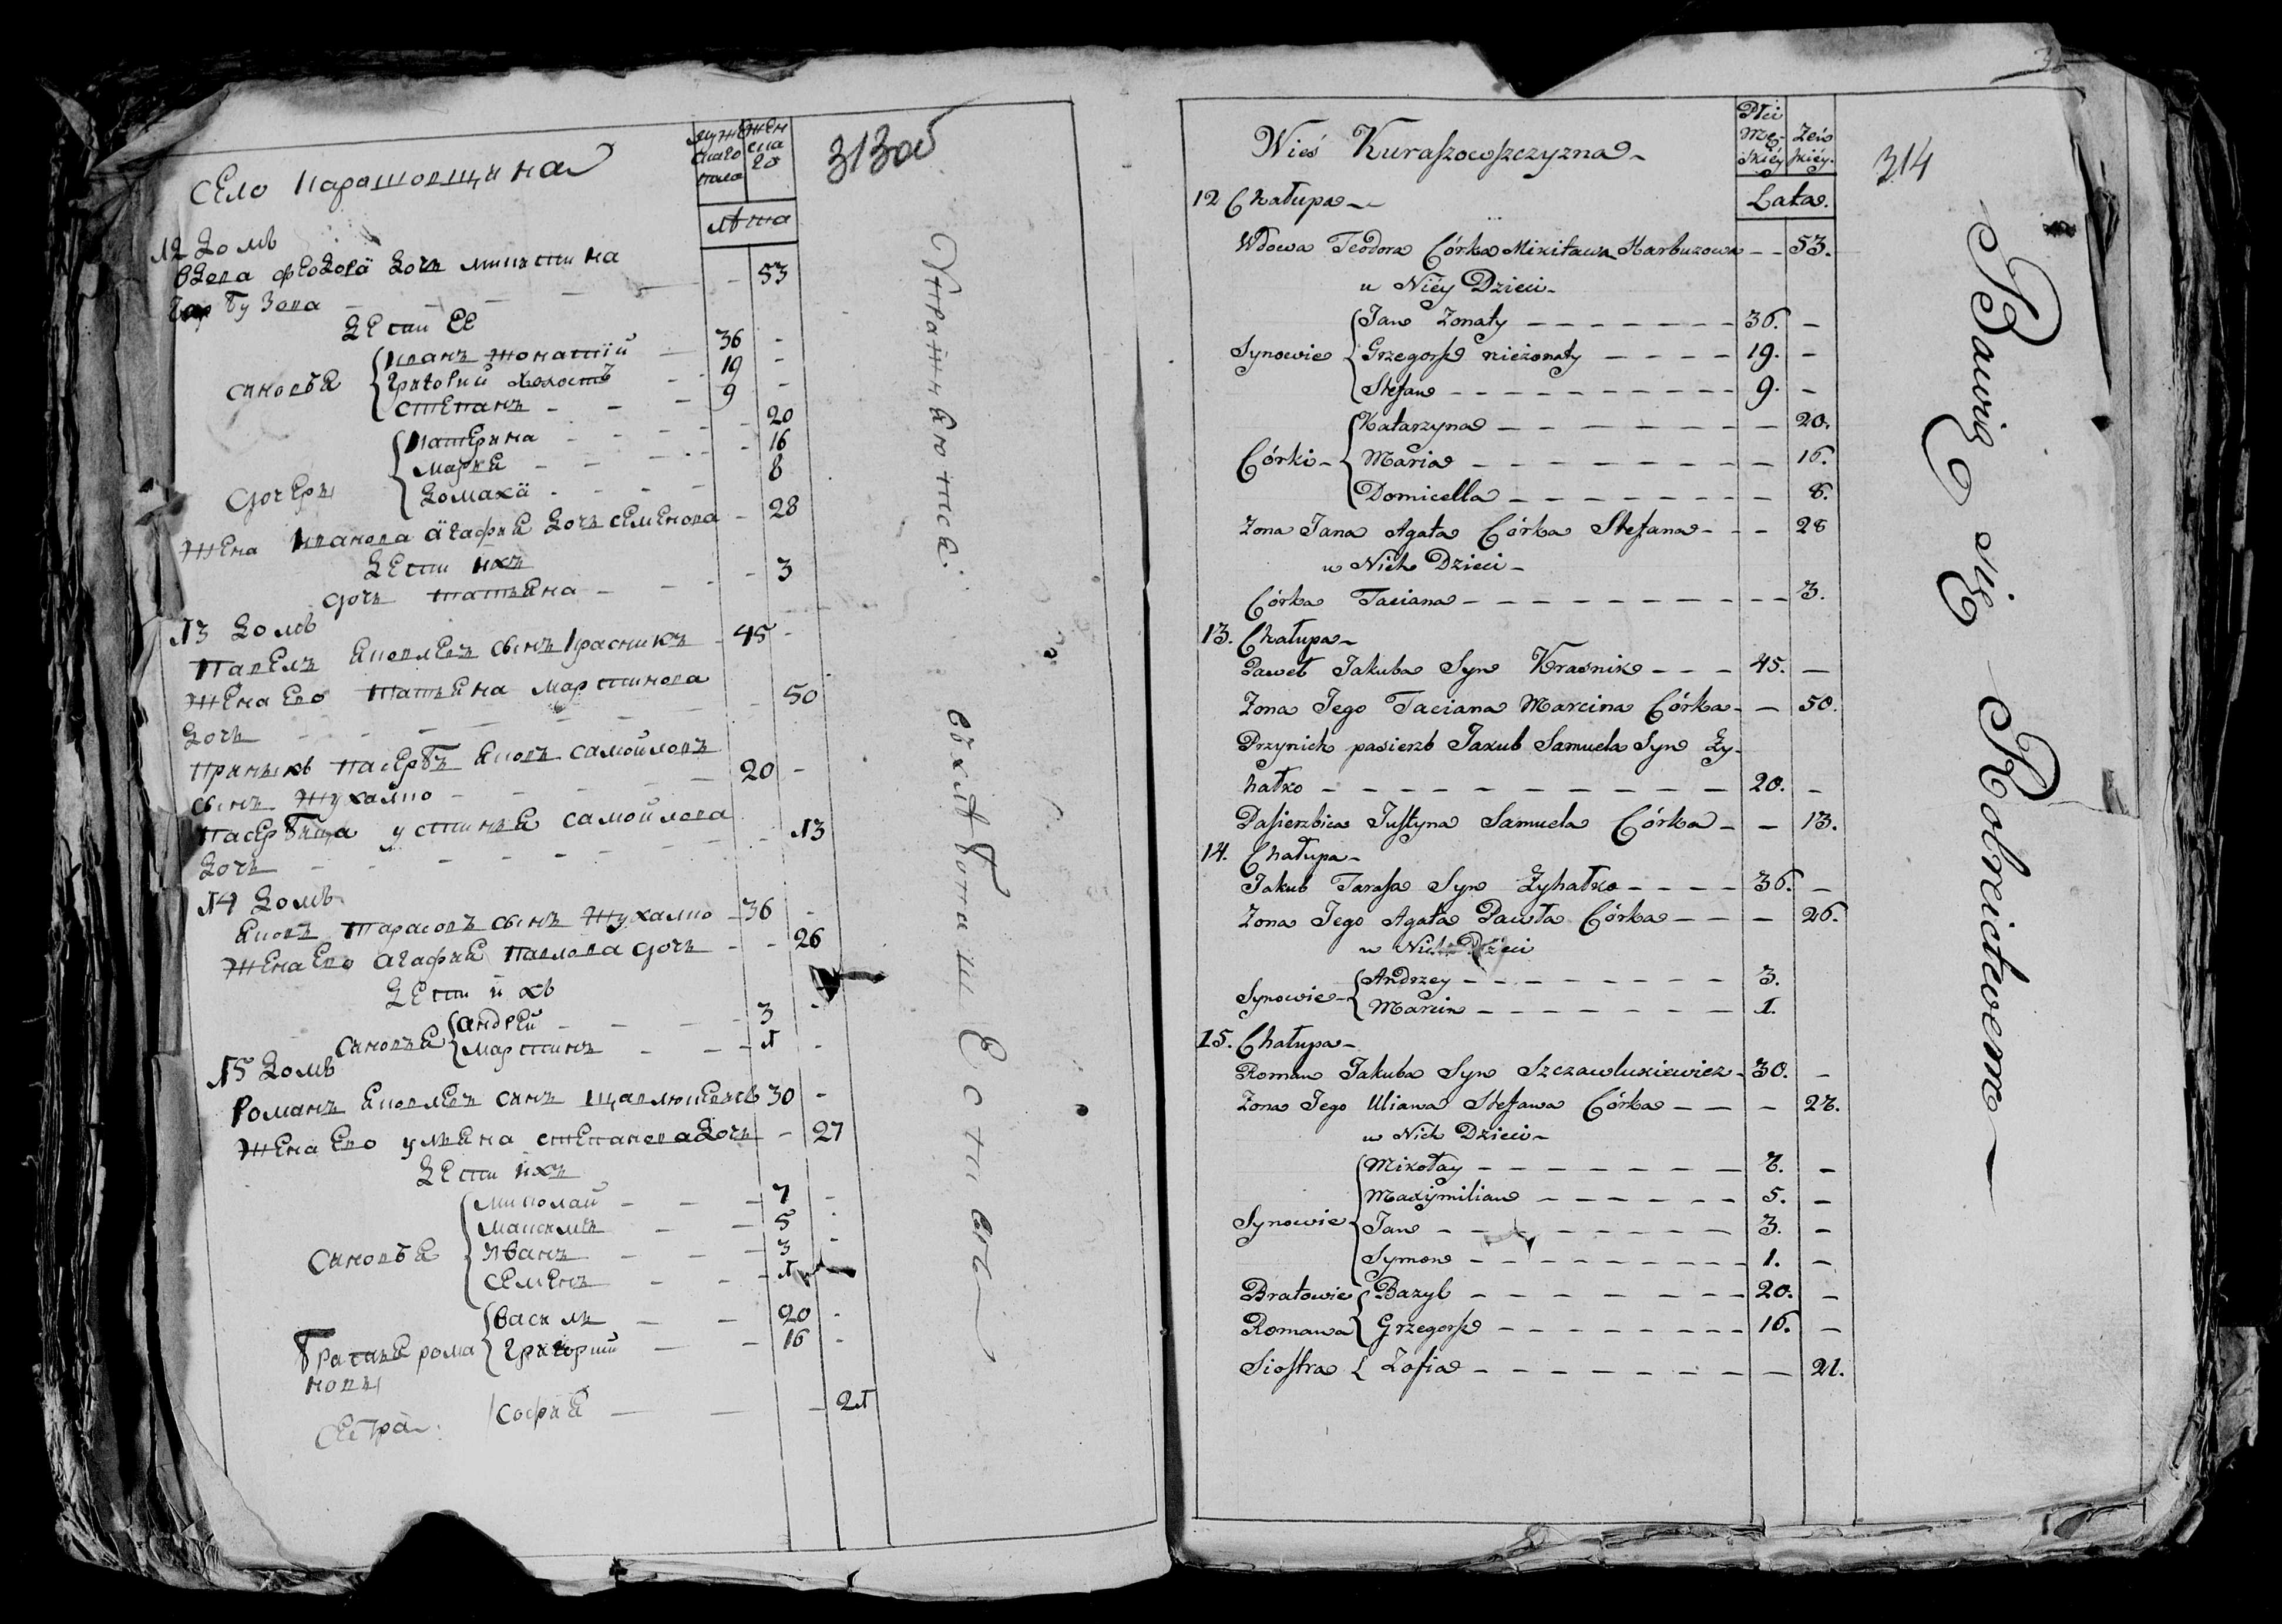 село Карашовщина
мужескаго пола
женскаго
313об
лѣта
12 домъ
вдова феодора дочь микитина
гарбузова – – – – 53
дети ее
сыновѣя
иванъ жонатий – 36 -
григорий холостъ - 19 -
степанъ - - - 9 -
дочеры
катерина - - - - 20
мария - - - - 16
домаха - - - - 8
жена иванова агафия дочь семенова - 28
дети ихъ
дочь татьяна – - - - 3
13 домъ
павелъ яковлевъ сынъ красникъ - 45 -
жена ево татьяна мартинова
дочь - - - - 50
принихъ пасербъ яковъ самойловъ
сынъ жухалко - - - 20 -
пасербица устинья самойлова
дочь - - - - 13
14 домъ
яковъ тарасовъ сынъ жухалко - 36 -
жена ево агафия павлова дочь - - 26
дети ихъ
сыновѣя
андрей - - - 3 -
мартинъ - - - 1 -
15 домъ
романъ яковлевъ сынъ 30 -
жена ево ульяна степанова дочь - 27
дети ихъ
сыновѣя
миколай - - - 7 -
максимъ - - - 5 -
иванъ - - - 3 -
семенъ - - - 1
братья романовы
василь - - 20 -
григорий - - 16 -
сестра
софия — — - 21
Упражняются
въ хлѣбопашестве
Wieś Kuraszowszczyzna
Płci Męskiéy
Zeńskiéy
314
Lata.
12 Chałupa
Wdowa Teodora Córka Mikitawa Harbuzowa – – 53.
u Niéy Dzieci
Synowie
Jan Zonaty – – – 36. –
Grzegorz nieżonaty – – – 19. –
Stefan – – – 9. –
Córki
Katarzyna – – – – 20.
Maria – – – – 16.
Domicella – – – – 8.
Zona Jana Agata Córka Stefana – – – 28
u Nich Dzieci
Córka Taciana – – – – 3.
13. Chałupa
Paweł Jakuba Syn Krasnik – – – 45. –
Zona Jego Taciana Marcina Córka – – 50.
Przynich pasierb Jakub Samuela Syn Zy-
hałko – – – – 20. –
Pasierbica Justyna Samuela Córka – – 13.
14. Chałupa
Jakub Tarasa Syn Zyhałko – – – – 36. –
Zona Jego Agata Pawła Córka – – – 26.
u Nich Dzieci
Synowie
Andrzey – – – – 3.
Marcin – – – – 1.
15. Chałupa
Roman Jakuba Syn Szczawlukiewicz – 30. –
Zona Jego Uliana Stefana Córka – – – 27.
u Nich Dzieci
Synowie
Mikołay – – – – 7. –
Maxymilian – – – – 5. –
Jan – – – – 3. –
Symon – – – – 1. –
Bratowie Romana
Bazyl – – – – 20. –
Grzegorz – – – – 16. –
Siostra Zofia – – – – 21.
Bawią się Rolnictwem